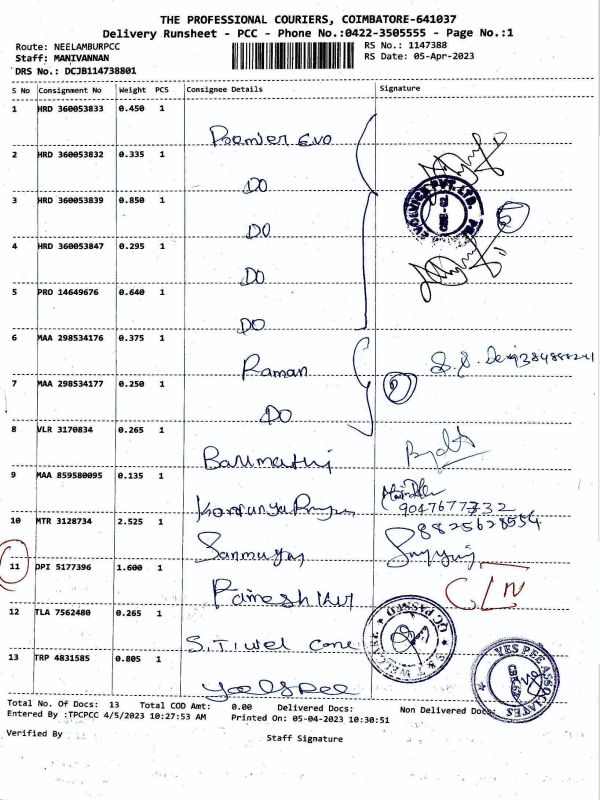 THE PROFESSIONAL COURIERS, COIMBATORE-641037
Delivery Runsheet - PCC - Phone No.:0422-3505555 - Page No.:1
Route: NEELAMBURPCC
RS No.: 1147388
Staff: MANIVANNAN
RS Date: 05-Apr-2023
DRS No.: DCJB114738801
S No Consignment No Weight PCS Consignee Details Signature
1 HRD 360053833 0.450 1
Premier Evo
2 HRD 360053832 0.335 1
DO
3 HRD 360053839 0.850 1
DO
4 HRD 360053847 0.295 1
DO
5 PRO 14649676 0.640 1
DO
6 MAA 298534176 0.375 1
Raman
7 MAA 298534177 0.250 1
DO
8 VLR 3170834 0.265 1
9 MAA 859580095 0.135 1
9047677332
10 MTR 3128734 2.525 1
8825628554
11 DPI 5177396 1.600 1
Ramesh Kur C/N
12 TLA 7562480 0.265 1
S.T.Wel Cone
13 TRP 4831585 0.805 1
YES PEE ASSOCIATES
Total No. Of Docs: 13 Total COD Amt: 0.00 Delivered Docs: Non Delivered Docs:
Entered By :TPCPCC 4/5/2023 10:27:53 AM Printed On: 05-04-2023 10:30:51
Verified By
Staff Signature